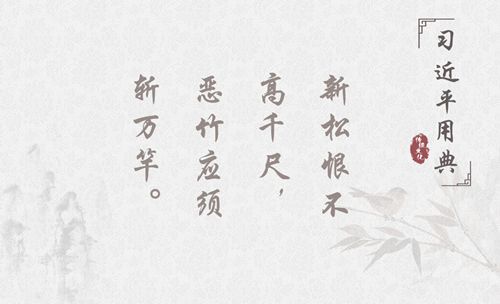 习近平用典
新松恨不
高千尺，
恶竹应须
斩万竿。